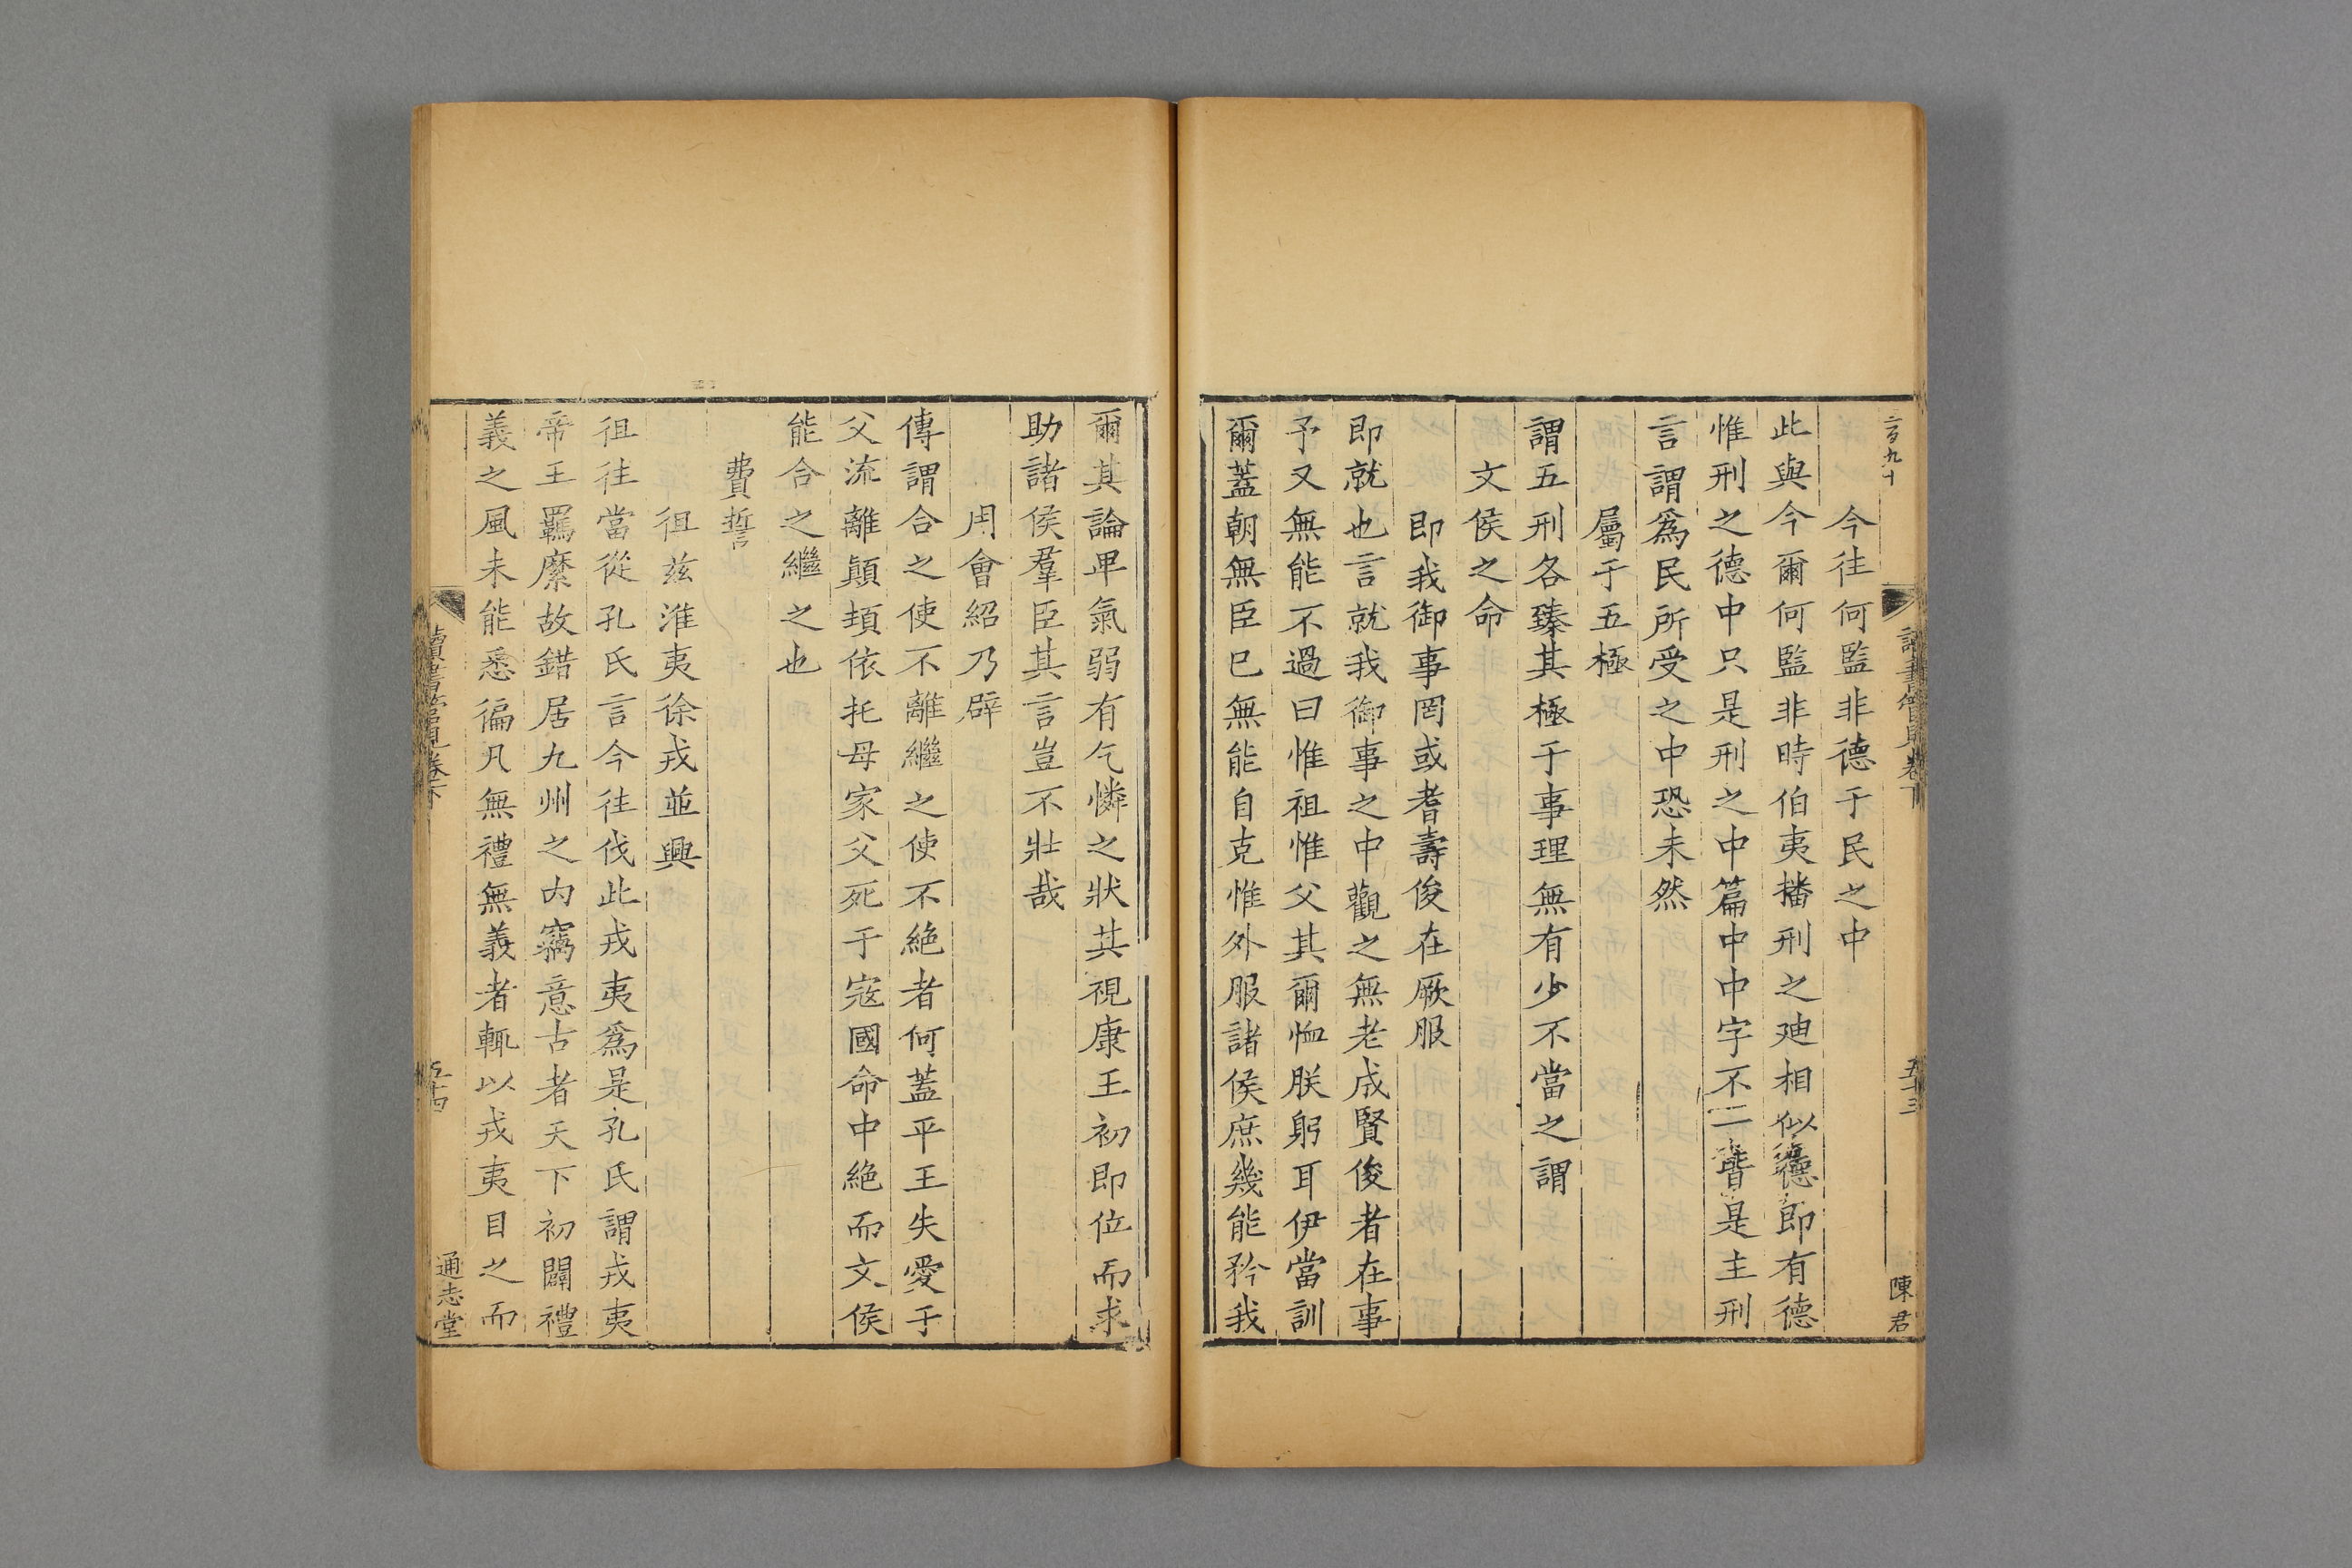 二百九十
今往何監非德于民之中
此與今爾何監非時伯夷播刑之廸相似德即有德
惟刑之德中只是刑之中篇中中字不二皆是主刑
言謂爲民所受之中恐未然
屬于五極
謂五刑各臻其極于事理無有少不當之謂
文侯之命
即我御事罔或耆壽俊在厥服
即就也言就我御事之中觀之無老成賢俊者在事
予又無能不過曰惟祖惟父其爾恤朕躬耳伊當訓
爾蓋朝無臣已無能自克惟外服諸侯庶幾能矜我
讀書管見卷下
五十三
陳君
爾其論卑氣弱有乞憐之狀其視康王初即位而求
助諸侯羣臣其言豈不壯哉
用會紹乃辟
傳謂合之使不離繼之使不絶者何蓋平王失愛于
父流離顛頓依托母家父死于寇國命中絶而文侯
能合之繼之也
費誓
徂兹淮夷徐戎並興
徂往當從孔氏言今往伐此戎夷爲是孔氏謂戎夷
帝王羈縻故錯居九州之内竊意古者天下初闢禮
義之風未能悉徧凡無禮無義者輒以戎夷目之而
讀書管見卷下
五十四
通志堂